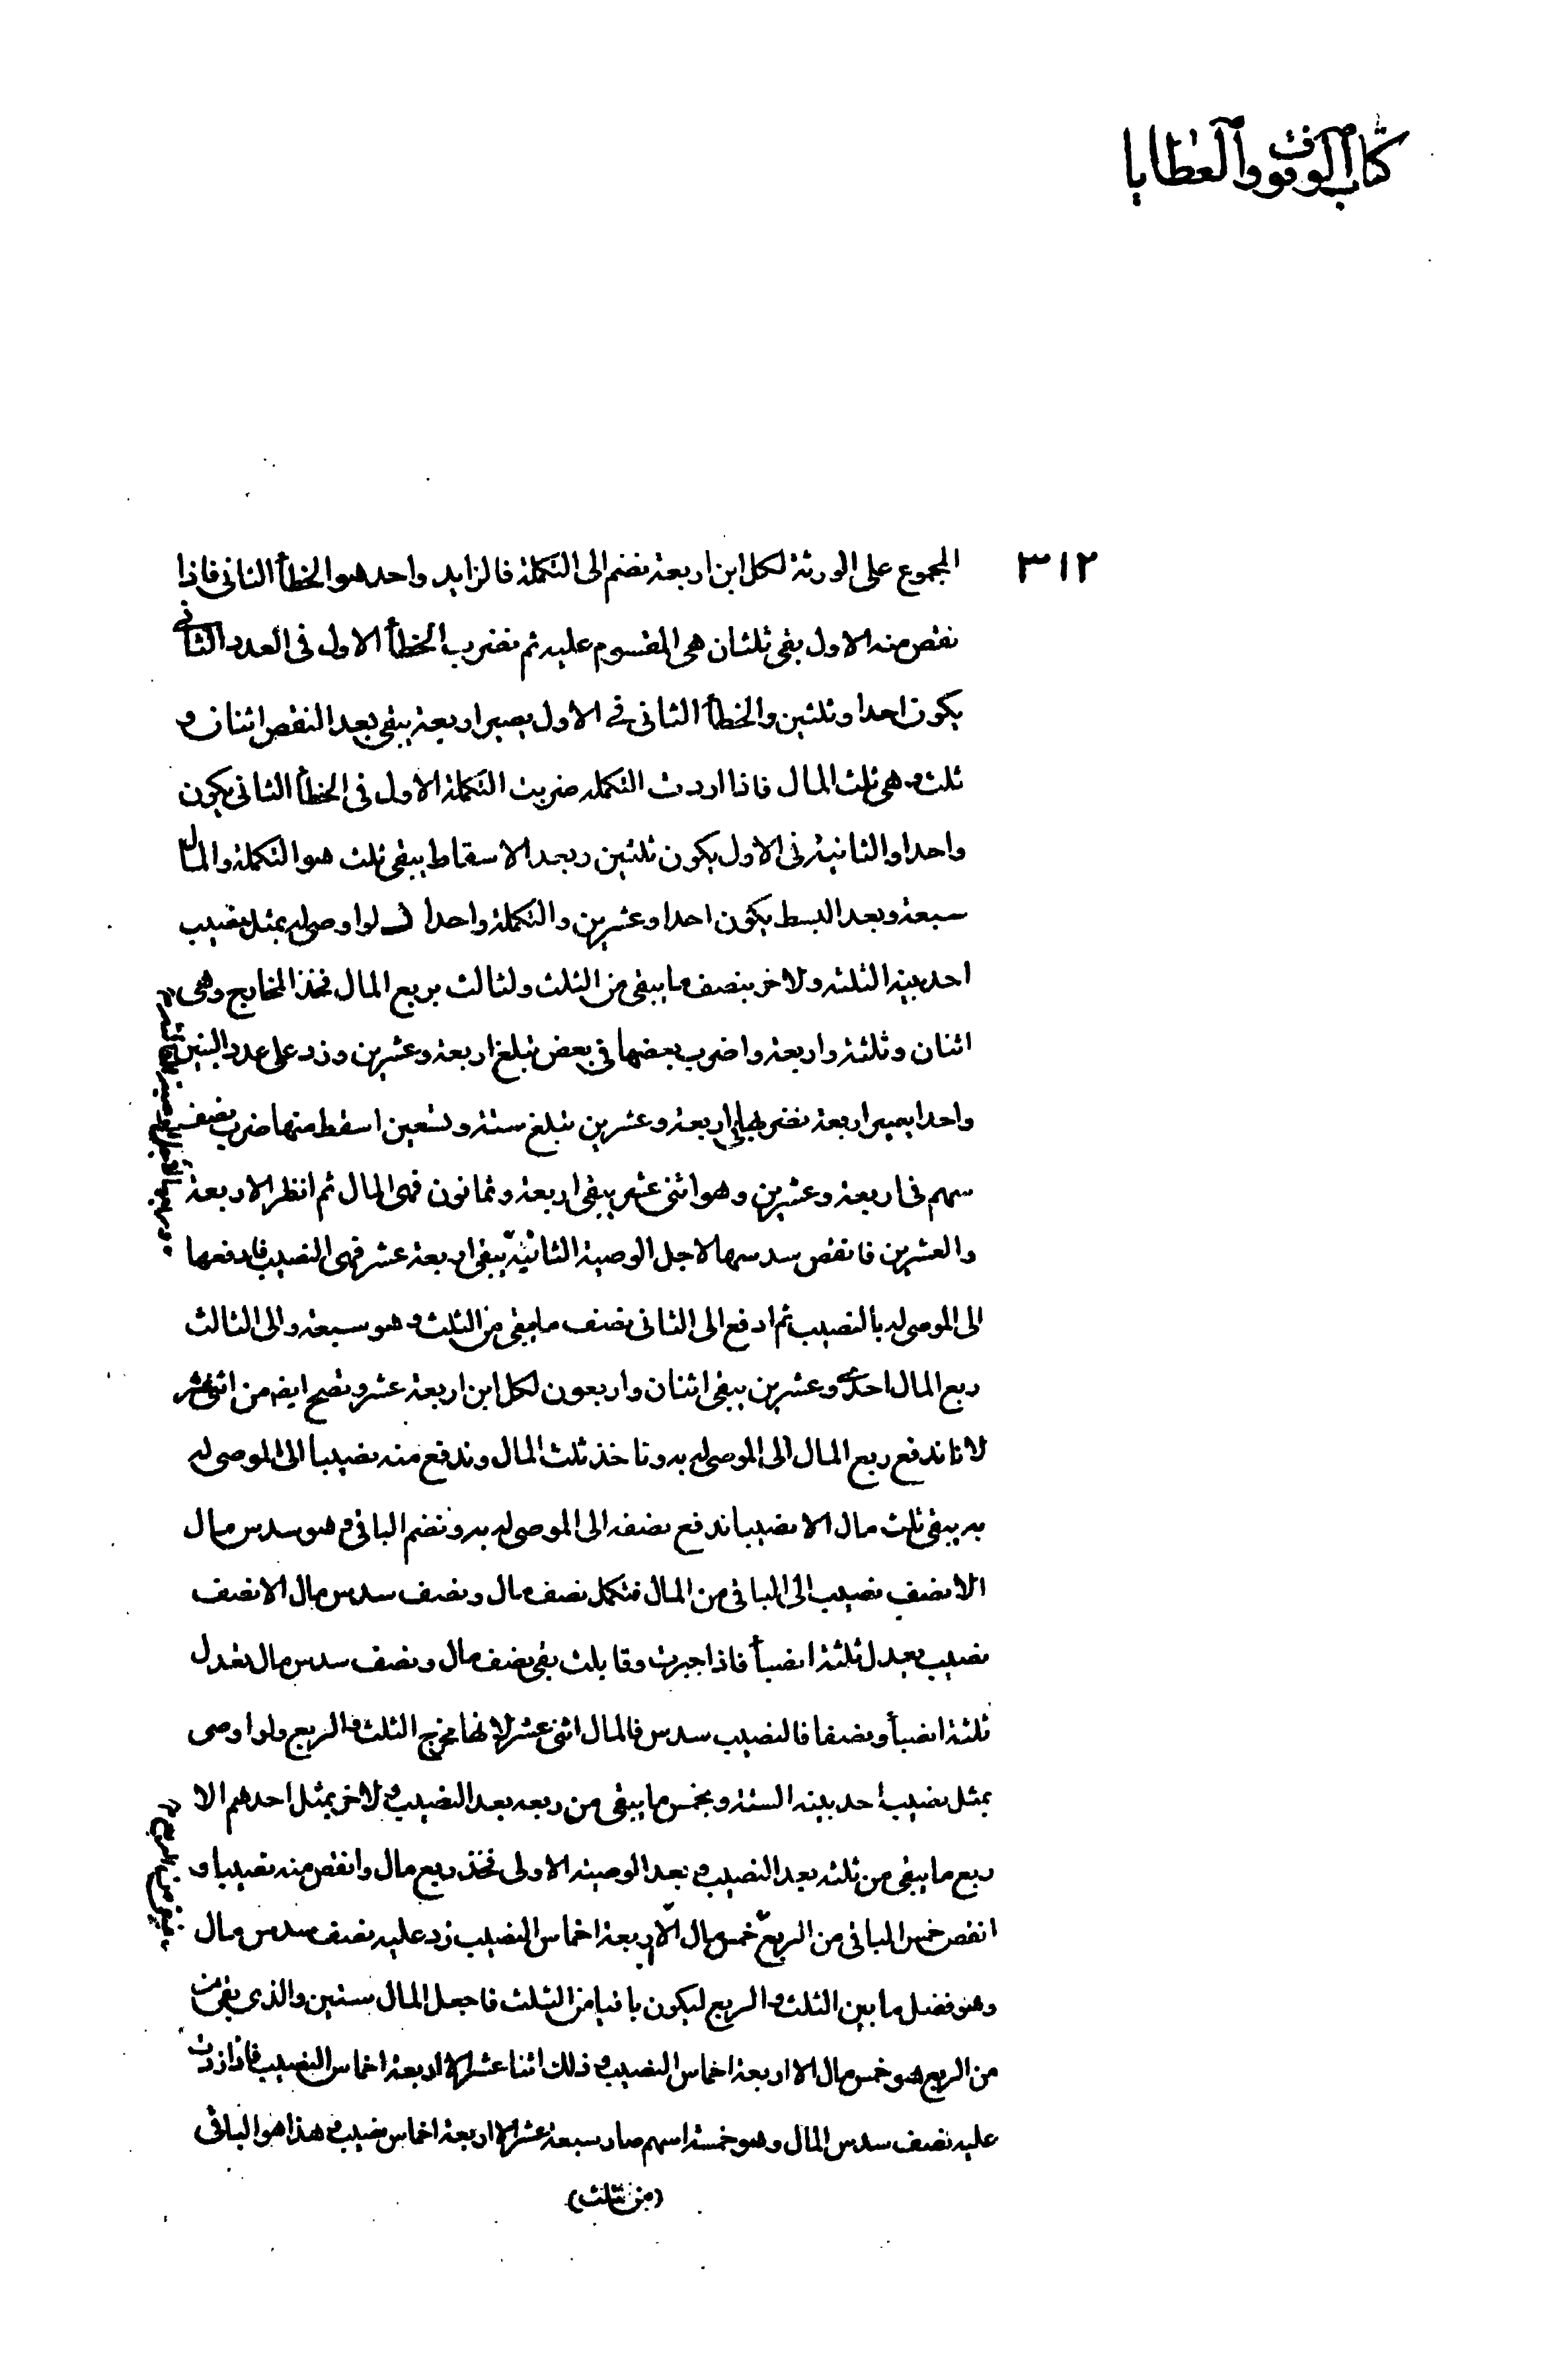 كتاب الوقوف والعطايا
٣١٢
المجموع على الورثة لكل ابن اربعة نضم الى التكملة فالزايد واحد هو الخطأ الثانى فاذا
نقص منه الاول بقى ثلثان هى المقسوم عليه ثم نضرب الخطأ الاول فى العدد الثانى
يكون احدا وثلثين والخطأ الثانى فى الاول يصير اربعة يبقى بعد النقص اثنان و
ثلث و هى ثلث المال فاذا اردت التكمله ضربت التكملة الاول فى الخطأ الثانى يكون
واحدا والثانية فى الاول يكون ثلثين وبعد الاسقاط يبقى ثلث هو التكملة والمال
سبعة وبعد البسط يكون احدا وعشرين والتكملة واحدا لو اوصى له بمثل نصيب
احد بنيه الثلثه ولاخر بنصف ما يبقى من الثلث ولثالث بربع المال فخذ المخارج وهى
اثنان وثلثة واربعة واضرب بعضها فى بعض تبلغ اربعة وعشرين وزد على عدد البنين
واحدا يصير اربعة نضربها فى اربعة وعشرين تبلغ ستة وتسعين اسقط منها ضرب نصف
سهم فى اربعة وعشرين وهو اثنى عشر يبقى اربعة وثمانون فهى المال ثم انظر الاربعة
والعشرين فانقص سدسها لاجل الوصية الثانية يبقى اربعة عشر فهى النصيب فادفعها
الى الموصى له بالنصيب ثم ادفع الى الثانى نصف ما يبقى من الثلث و هو سبعة والى الثالث
ربع المال احدى وعشرين يبقى اثنان واربعون لكل ابن اربعة عشر وتصح ايضا من اثنى عشر
لانا ندفع ربع المال الى الموصى له به وناخذ ثلث المال وندفع منه نصيبا الى الموصى له
به يبقى ثلث مال الا نصيبا ندفع نصفه الى الموصى له به ونضم الباقى و هو سدس مال
الا نصف نصيب الى الباقى من المال فتكمل نصف مال ونصف سدس مال الا نصف
نصيب يعدل ثلثة انصبأ فاذا جبرت وقابلت بقى نصف مال ونصف سدس مال تعدل
ثلثة انصبأ ونصفا فالنصيب سدس فالمال اثنى عشر لانها مخرج الثلث و الربع ولو اوصى
بمثل نصيب احد بنيه الستة وبخمس ما يبقى من ربعه بعد النصيب و لاخر بمثل احدهم الا
ربع ما يبقى من ثلثه بعد النصيب و بعد الوصية الاولى فخذ ربع مال وانقص منه نصيبا و
انقص خمس الباقى من الربع خمس مال الا اربعة اخماس النصيب زد عليه نصف سدس مال
وهو فضل ما بين الثلث و الربع ليكون باقيا من الثلث فاجعل المال ستين والذى بقى من
من الربع هو خمس مال الا اربعة اخماس النصيب و ذلك اثنا عشر الا اربعة اخماس النصيب فاذا زدت
عليه نصف سدس المال وهو خمسة اسهم صار سبعة عشر الا اربعة اخماس نصيب و هذا هو الباقى
(من ثلث)
يبقى من الربع